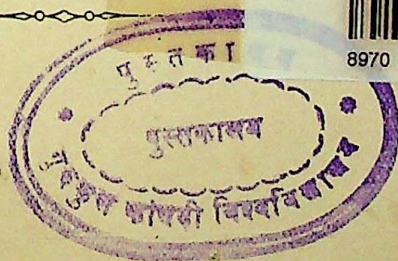 8970
पुस्तका
पुस्तकालय
गुरुकुल कांगड़ी विश्वविद्यालय